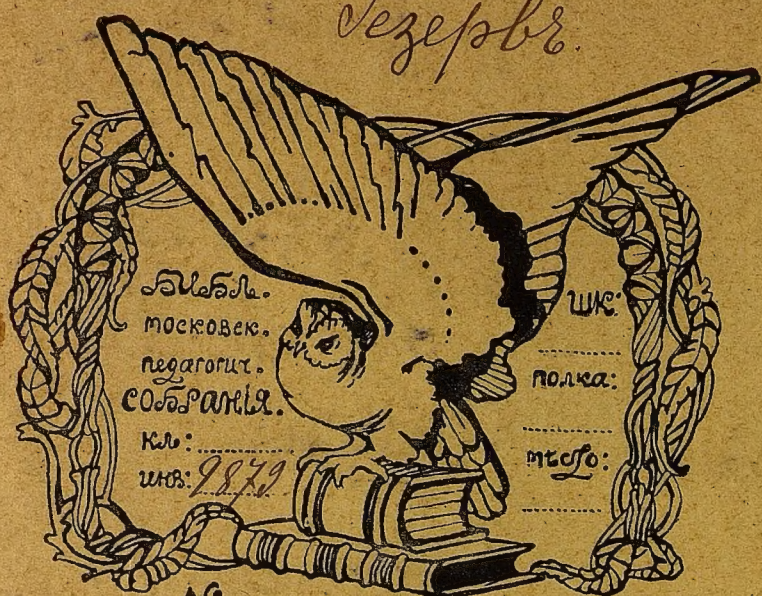 Резервъ.
Библ.
московск.
педагогич.
СОБРАНІЯ.
кл:
инв: 9879
шк:
полка:
мѣсто: